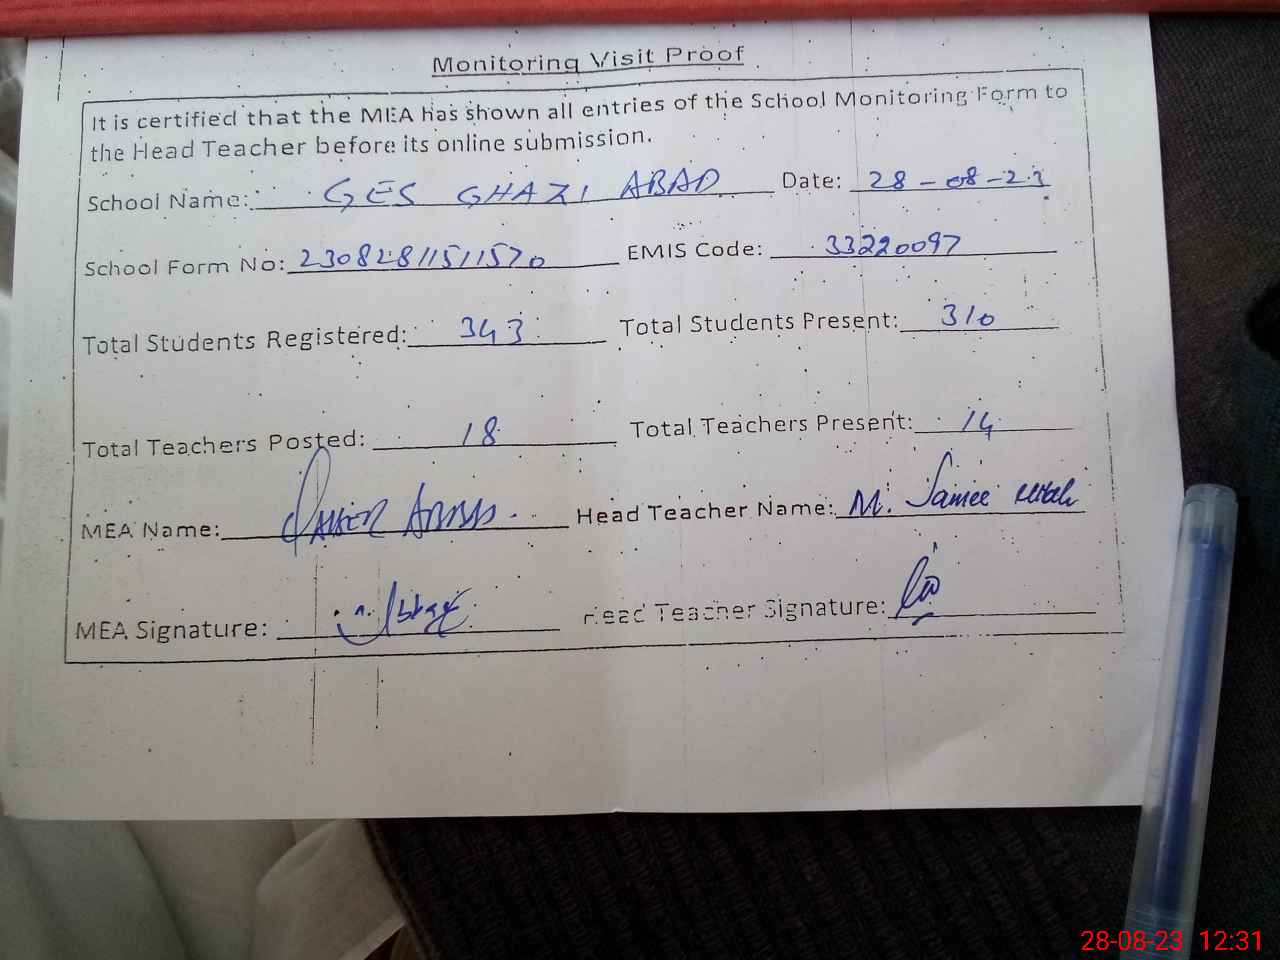 Monitoring Visit Proof
It is certified that the MEA has shown all entries of the School Monitoring Form to
the Head Teacher before its online submission.
School Name: GES GHAZI ABAD Date: 28-08-23
School Form No: 23082811511570 EMIS Code: 33220097
Total Students Registered: 343 Total Students Present: 310
Total Teachers Posted: 18 Total Teachers Present: 14
MEA Name: Head Teacher Name: M.
MEA Signature: Head Teacher Signature:
28-08-23 12:31